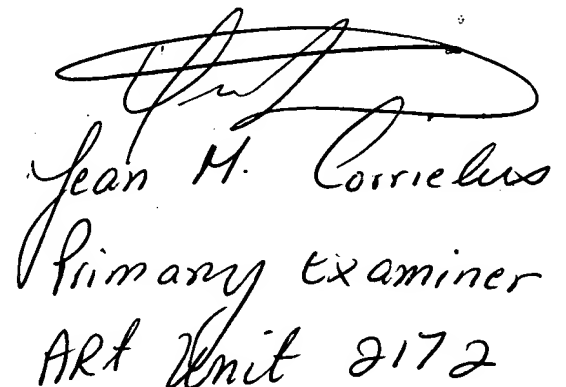 Jean M. Corrielus
Primary Examiner
ARt Unit 2172